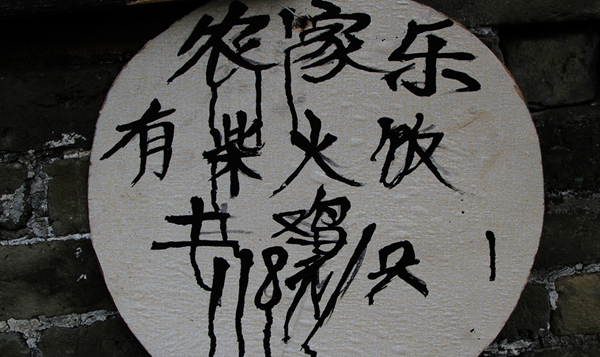 农家乐
有柴火饭
土鸡
118元/只